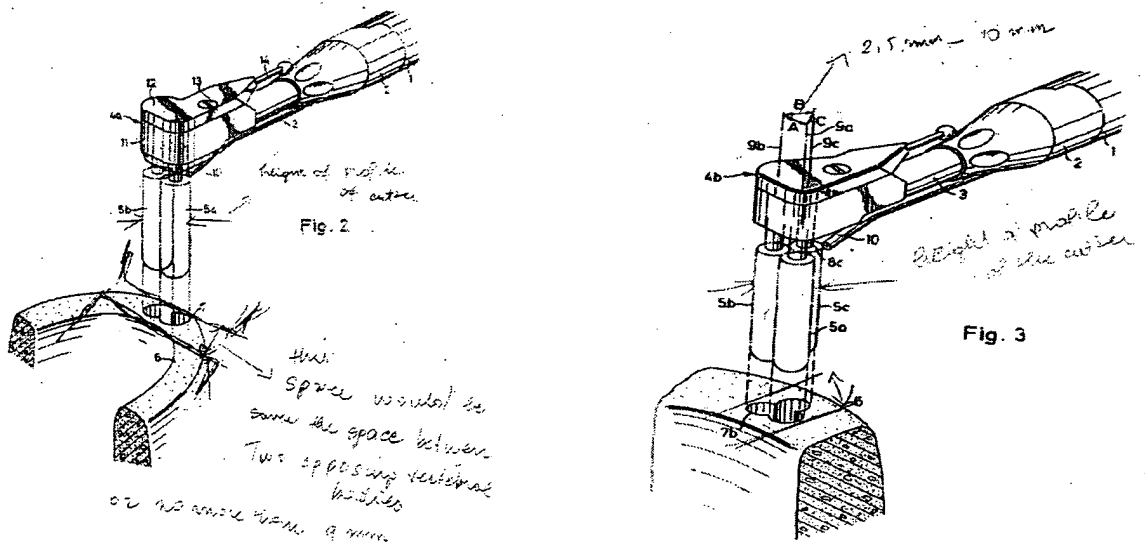 12
13
14
1
2
4a
11
2
10
height of profile
of cutter
5b
5a
Fig. 2
6
this
space would be
same the space between
Two opposing vertebral
bodies
or no more than 9 mm
2,5 mm - 10 mm
B
A
C
9a
9b
9c
4b
1
2
3
10
8c
height of profile
of the cutter
5b
5c
5a
Fig. 3
6
7b